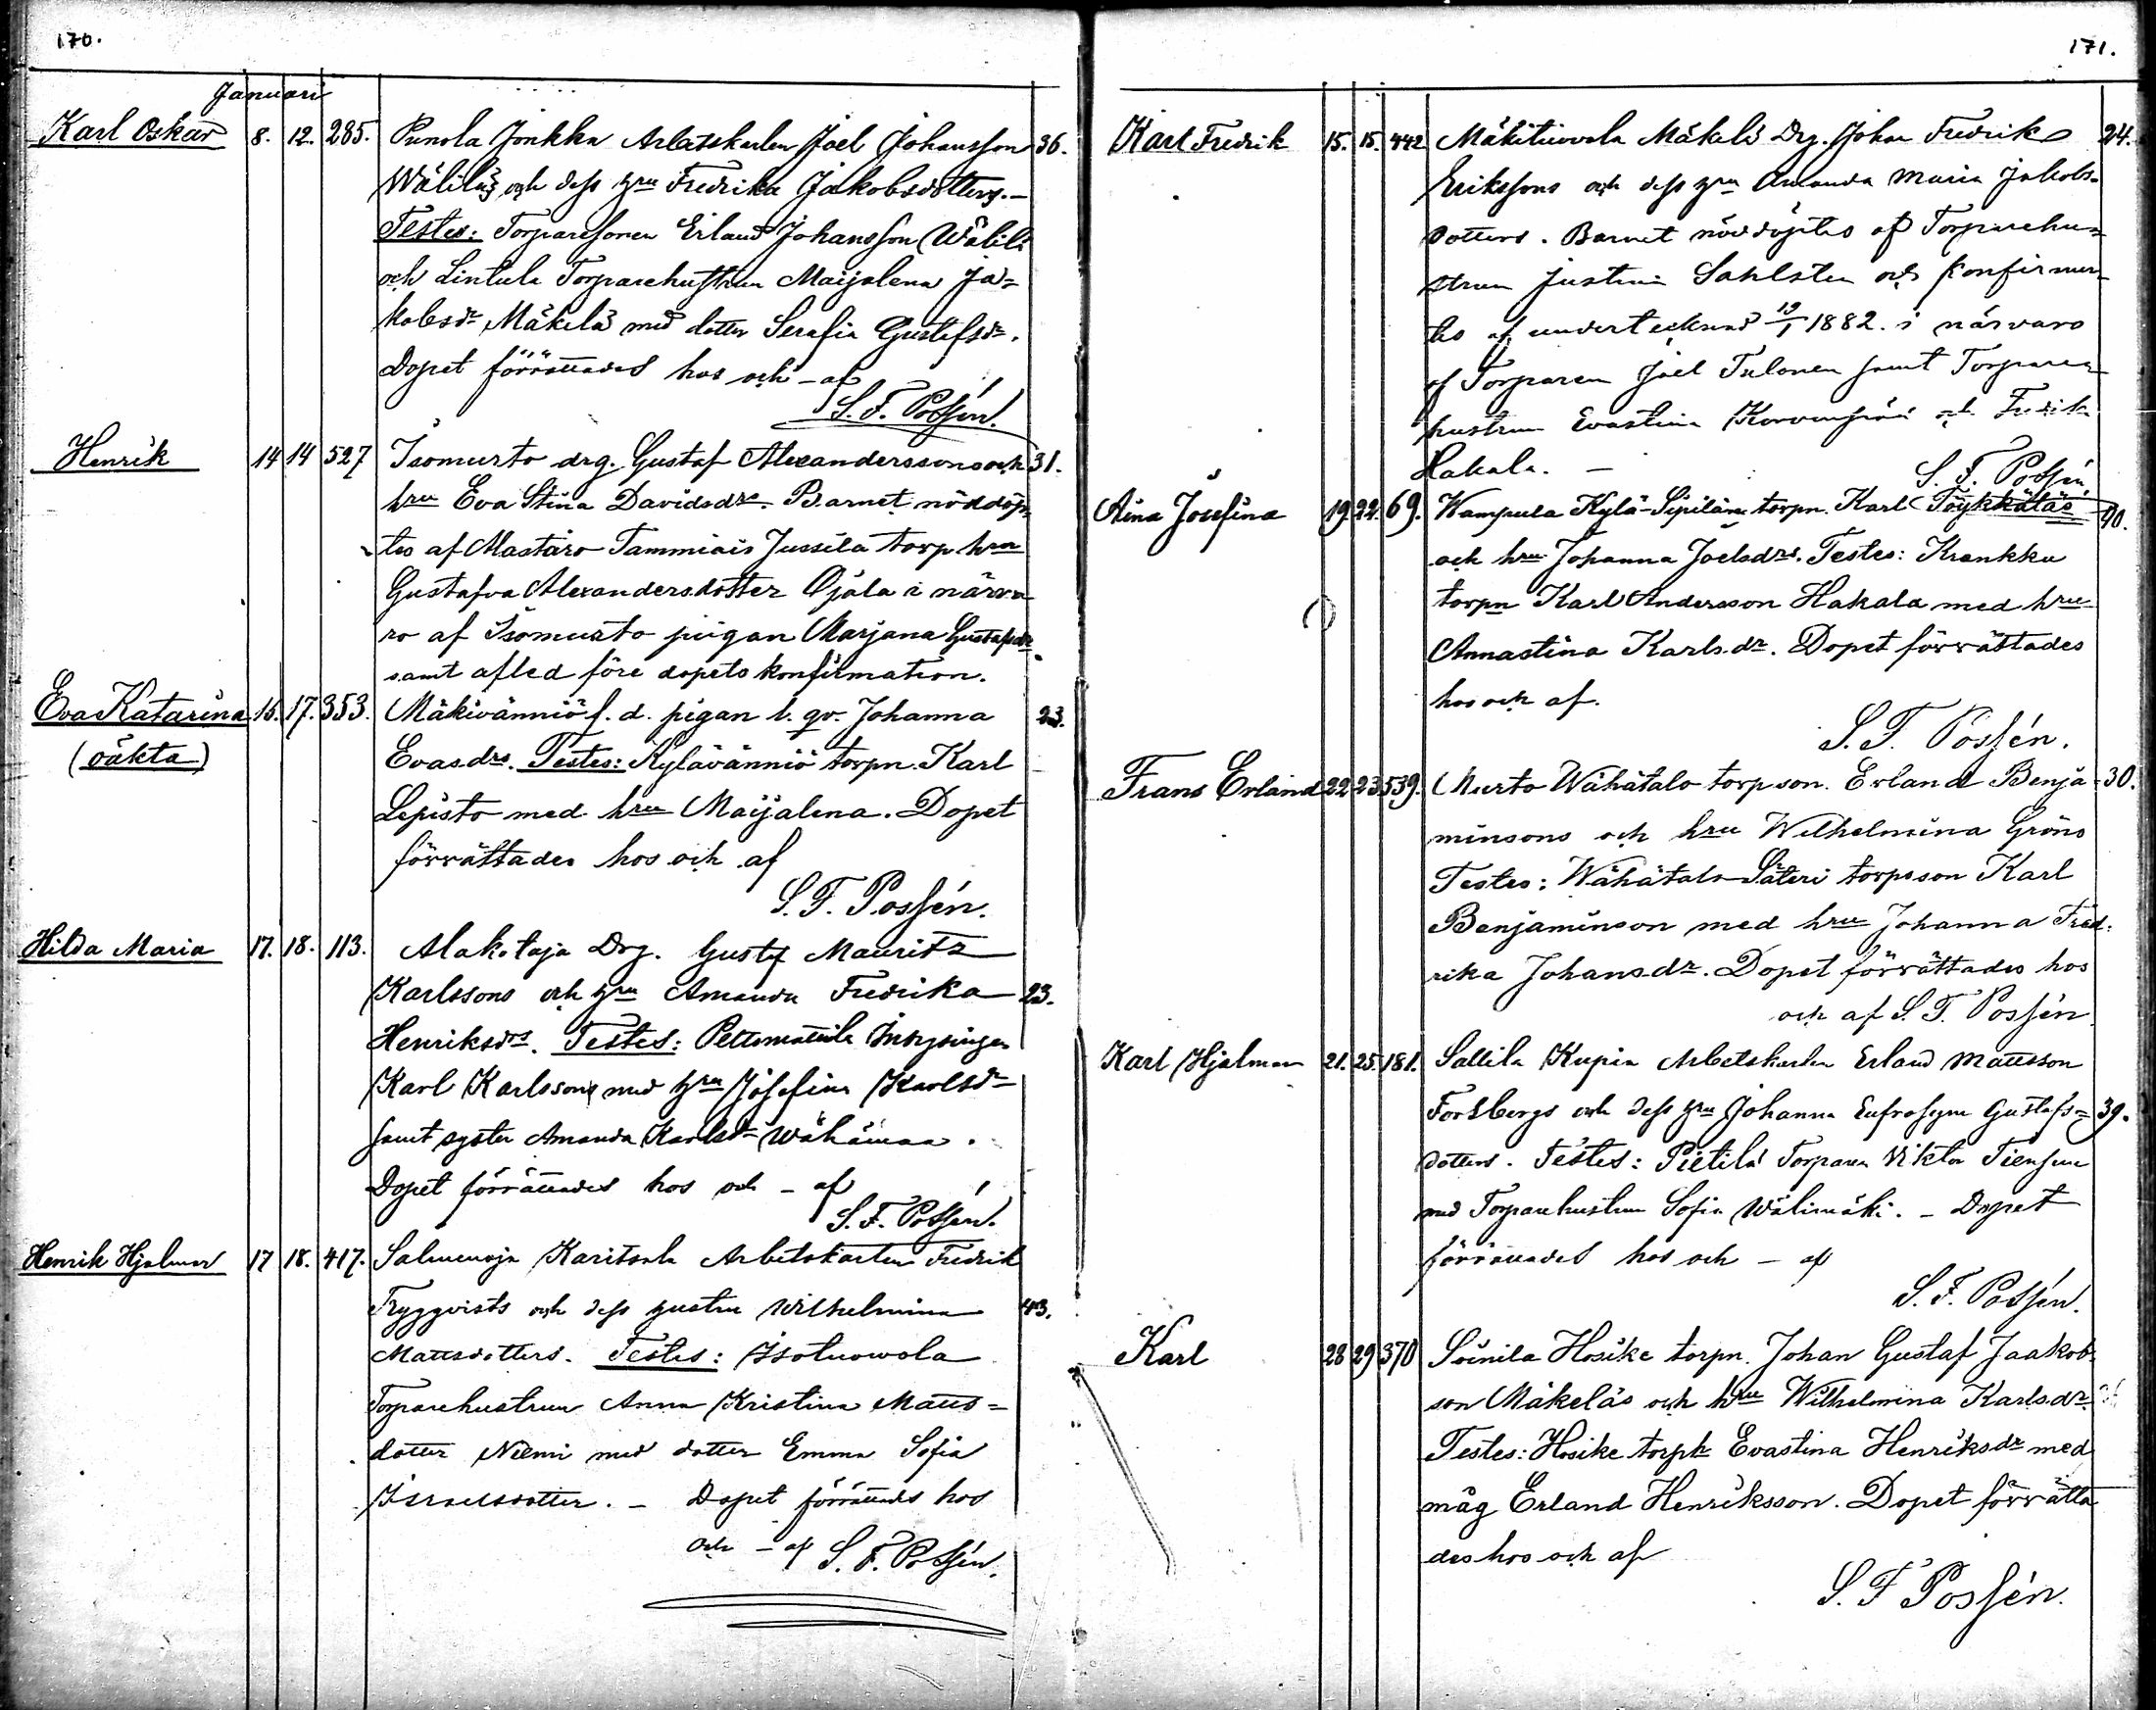 170.
Januari
Karl Oskar 8. 12. 285. Punola Jonkka Arbetskarlen Joel Johansson 36.
Wälilä's och dess hru Fredrika Jakobsdotters. –
Testes: Torparesonen Erland Johansson Wälilä
och Lintula Torparehustrun Maijalena Ja=
kobsdr Mäkelä med dotter Serafia Gustafsdr.
Dopet förrättades hos och – af
S. F. Possén.
Henrik 14 14 527 Isomurto drg. Gustaf Alexanderssons och 31.
hru Eva Stina Davidsdrs. Barnet nöddöp-
tes af Mastäro Tammiais Jussila torp hru
Gustafva Alexandersdotter Ojala i närva
ro af Isomurto pigan Marjana Gustafsdr
samt afled före dopets konfirmation.
Eva Katarina 16. 17. 353. Mäkivänniö f. d. pigan l. qv. Johanna 23.
(oäkta) Evasdrs. Testes: Kylävänniö torpn. Karl
Lepistö med hru Maijalena. Dopet
förrättades hos och af
S. F. Possén.
Hilda Maria 17. 18. 113. Alakotaja Drg. Gustaf Mauritz
Karlssons och hru Amanda Fredrika 23.
Henriksdrs. Testes: Inhysingen
Karl Karlsson med hru Josefina Karlsdr
samt syster Amanda Karlsdr Wähämaa.
Dopet förrättades hos och – af
S. F. Possén.
Henrik Hjalmar 17 18. 417. Salmenoja Karitsala Arbetskarlen Fredrik
Tryggvists och dess hustru Wilhelmina 43.
Mattsdotters. Testes: Isotuowola
Torparehustrun Anna Kristina Matts=
dotter Niemi med dotter Emma Sofia
Israelsdotter. – Dopet förrättades hos
och – af S. F. Possén.
171.
Karl Fredrik 15. 15. 442 Mäkituowola Mäkelä Drg. Johan Fredrik 24.
Erikssons och dess hru Amanda Maria Jakobs-
dotters. Barnet nöddöptes af Torparehu=
strun Justina Sahlsten och konfirmera-
des af undertecknad 19/1 1882. i närvaro
af Torparen Joel Tulonen samt Torpare
hustrun Evastina Korvenpää och Fredrika
Hakala. – S. F. Possén
Aina Josefina 19 22. 69. Wampula Kylä-Sipilän torpn. Karl Töykkäläs 40.
och hru Johanna Joelsdrs. Testes: Krankku
torpn Karl Andersson Hakala med hru
Annastina Karlsdr. Dopet förrättades
hos och af.
S. F. Possén.
Frans Erland 22 23 539. Murto Wähätalo torpson. Erland Benja= 30.
minsons och hru Wilhelmina Gröns
Testes: Wähätalo Säteri torpsson Karl
Benjaminson med hru Johanna Fred-
rika Johansdr. Dopet förrättades hos
och af S. F. Possén.
Karl Hjalmar 21. 25. 181. Sallila Kupia Arbetskarlen Erland Mattsson
Forsbergs och dess hru Johanna Eufrosyne Gustafs= 39.
dotters. Testes: Pietilä Torparen Viktor Tiensuu
med Torparehustrun Sofia Wälimäki. – Dopet
förrättades hos och – af
S. F. Possén.
Karl 28 29 370 Soinila Hosike torpn. Johan Gustaf Jaakob-
son Mäkeläs och hru Wilhelmina Karlsdrs.
Testes: Hosike torph Evastina Henriksdr med
måg Erland Henriksson. Dopet förrätta
des hos och af
S. F Possén.